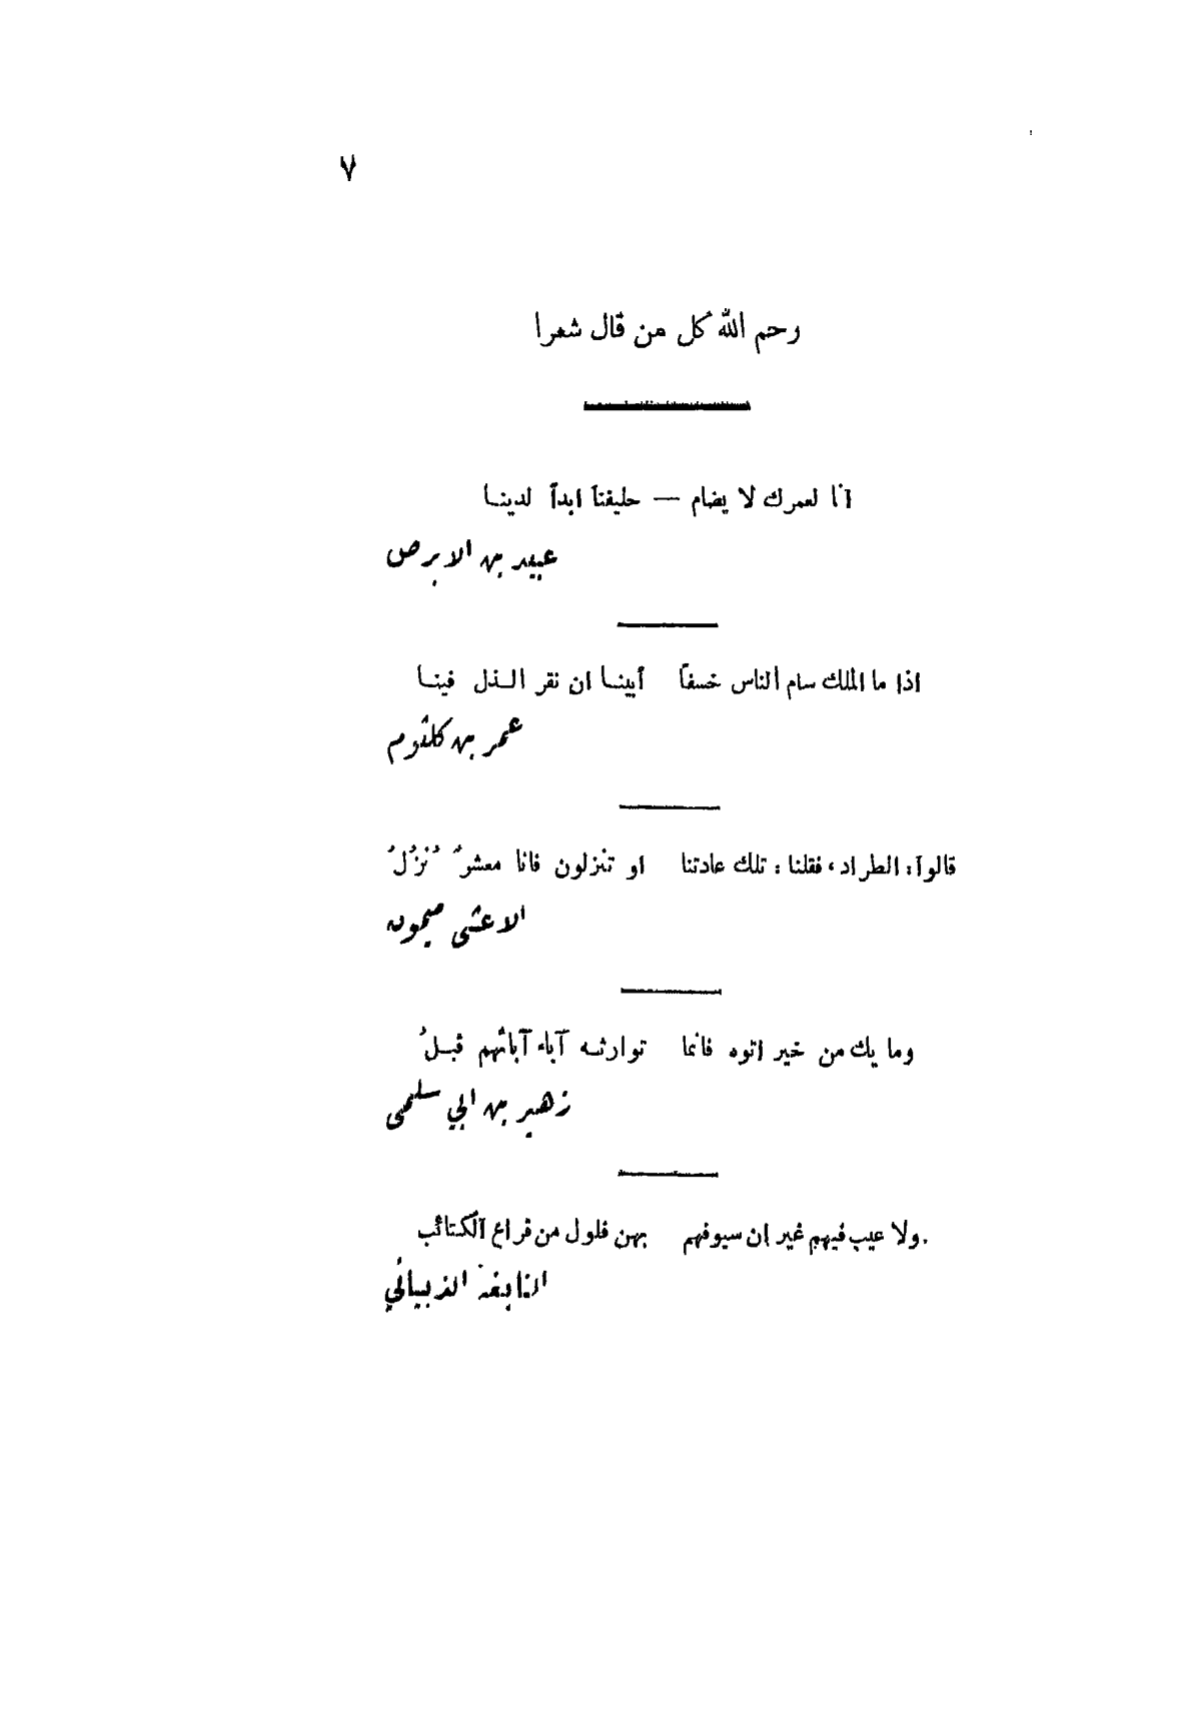 ٧
رحم الله كل من قال شعرا
انا لعمرك لا يضام — حليفنا ابداً لدينـا
عبيد بن الابرص
اذا ما الملك سام الناس خسفاً أبينـا ان نقر الـذل فينـا
عمر بن كلثوم
قالوا: الطراد، فقلنا: تلك عادتنا او تنزلون فانا معشرٌ نُزُلُ
الاعشى ميمون
وما يك من خير اتوه فانما توارثـه آباء آبائهم قبـلُ
زهير بن ابي سلمى
ولا عيب فيهم غير ان سيوفهم بهن فلول من قراع الكتائب
النابغة الذبياني